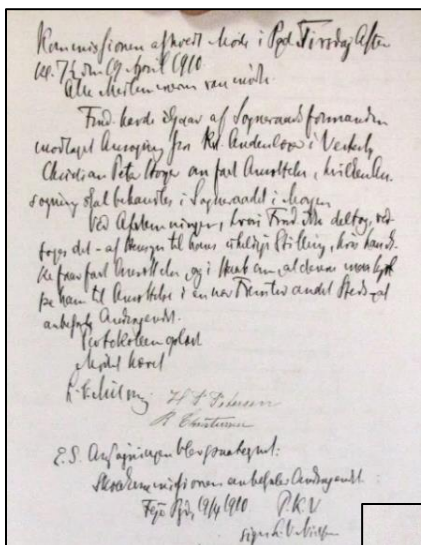 Kommissionen afholdt Møde i Pgd. Tirsdag Aften
Kl. 7½ den 19 April 1910.
Alle Medlemmerne var mødt.
Fmd. havde igaar af Sogneraadsformanden
modtaget Ansøgning fra
Christian Peter om fast Ansættelse, hvilken An-
søgning skal behandles i Sogneraadet i Morgen
Ved Afstemningen, hvori Fmd. ikke deltog, ved-
toges det - af Hensyn til hans uheldige Stilling, hvis han ik-
ke faar fast Ansættelse, og i Haab om, at denne
pe ham til Ansættelse i en andet Sted - at
anbefale Andragendet.
Protokollen oplæst
Mødet hævet
H. P. Petersen
K Christensen
E.S. Ansøgningen blev paategnet:
Skolekommissionen anbefaler Andragendet
Fejø Pgd. 19/4 1910 P.K.V